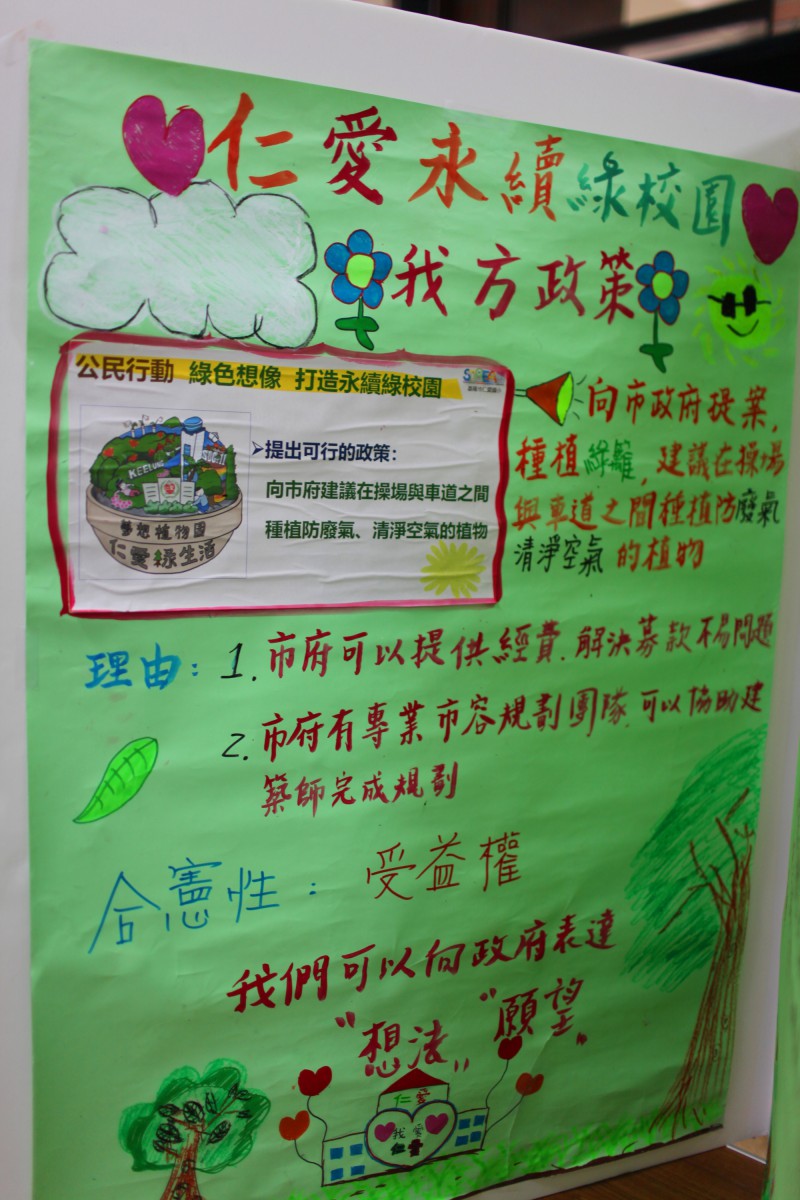 仁愛永續綠校園
我方政策
公民行動 綠色想像 打造永續綠校園
➢提出可行的政策：
向市府建議在操場與車道之間
種植防廢氣、清淨空氣的植物
KEELUNG
夢想植物園
仁愛綠生活
向市政府提案，
種植綠籬，建議在操場
與車道之間種植防廢氣
清淨空氣的植物
理由：1.市府可以提供經費，解決募款不易問題
2.市府有專業市容規劃團隊，可以協助建
築師完成規劃
合憲性：受益權
我們可以向政府表達
"想法" "願望"
仁愛
我愛